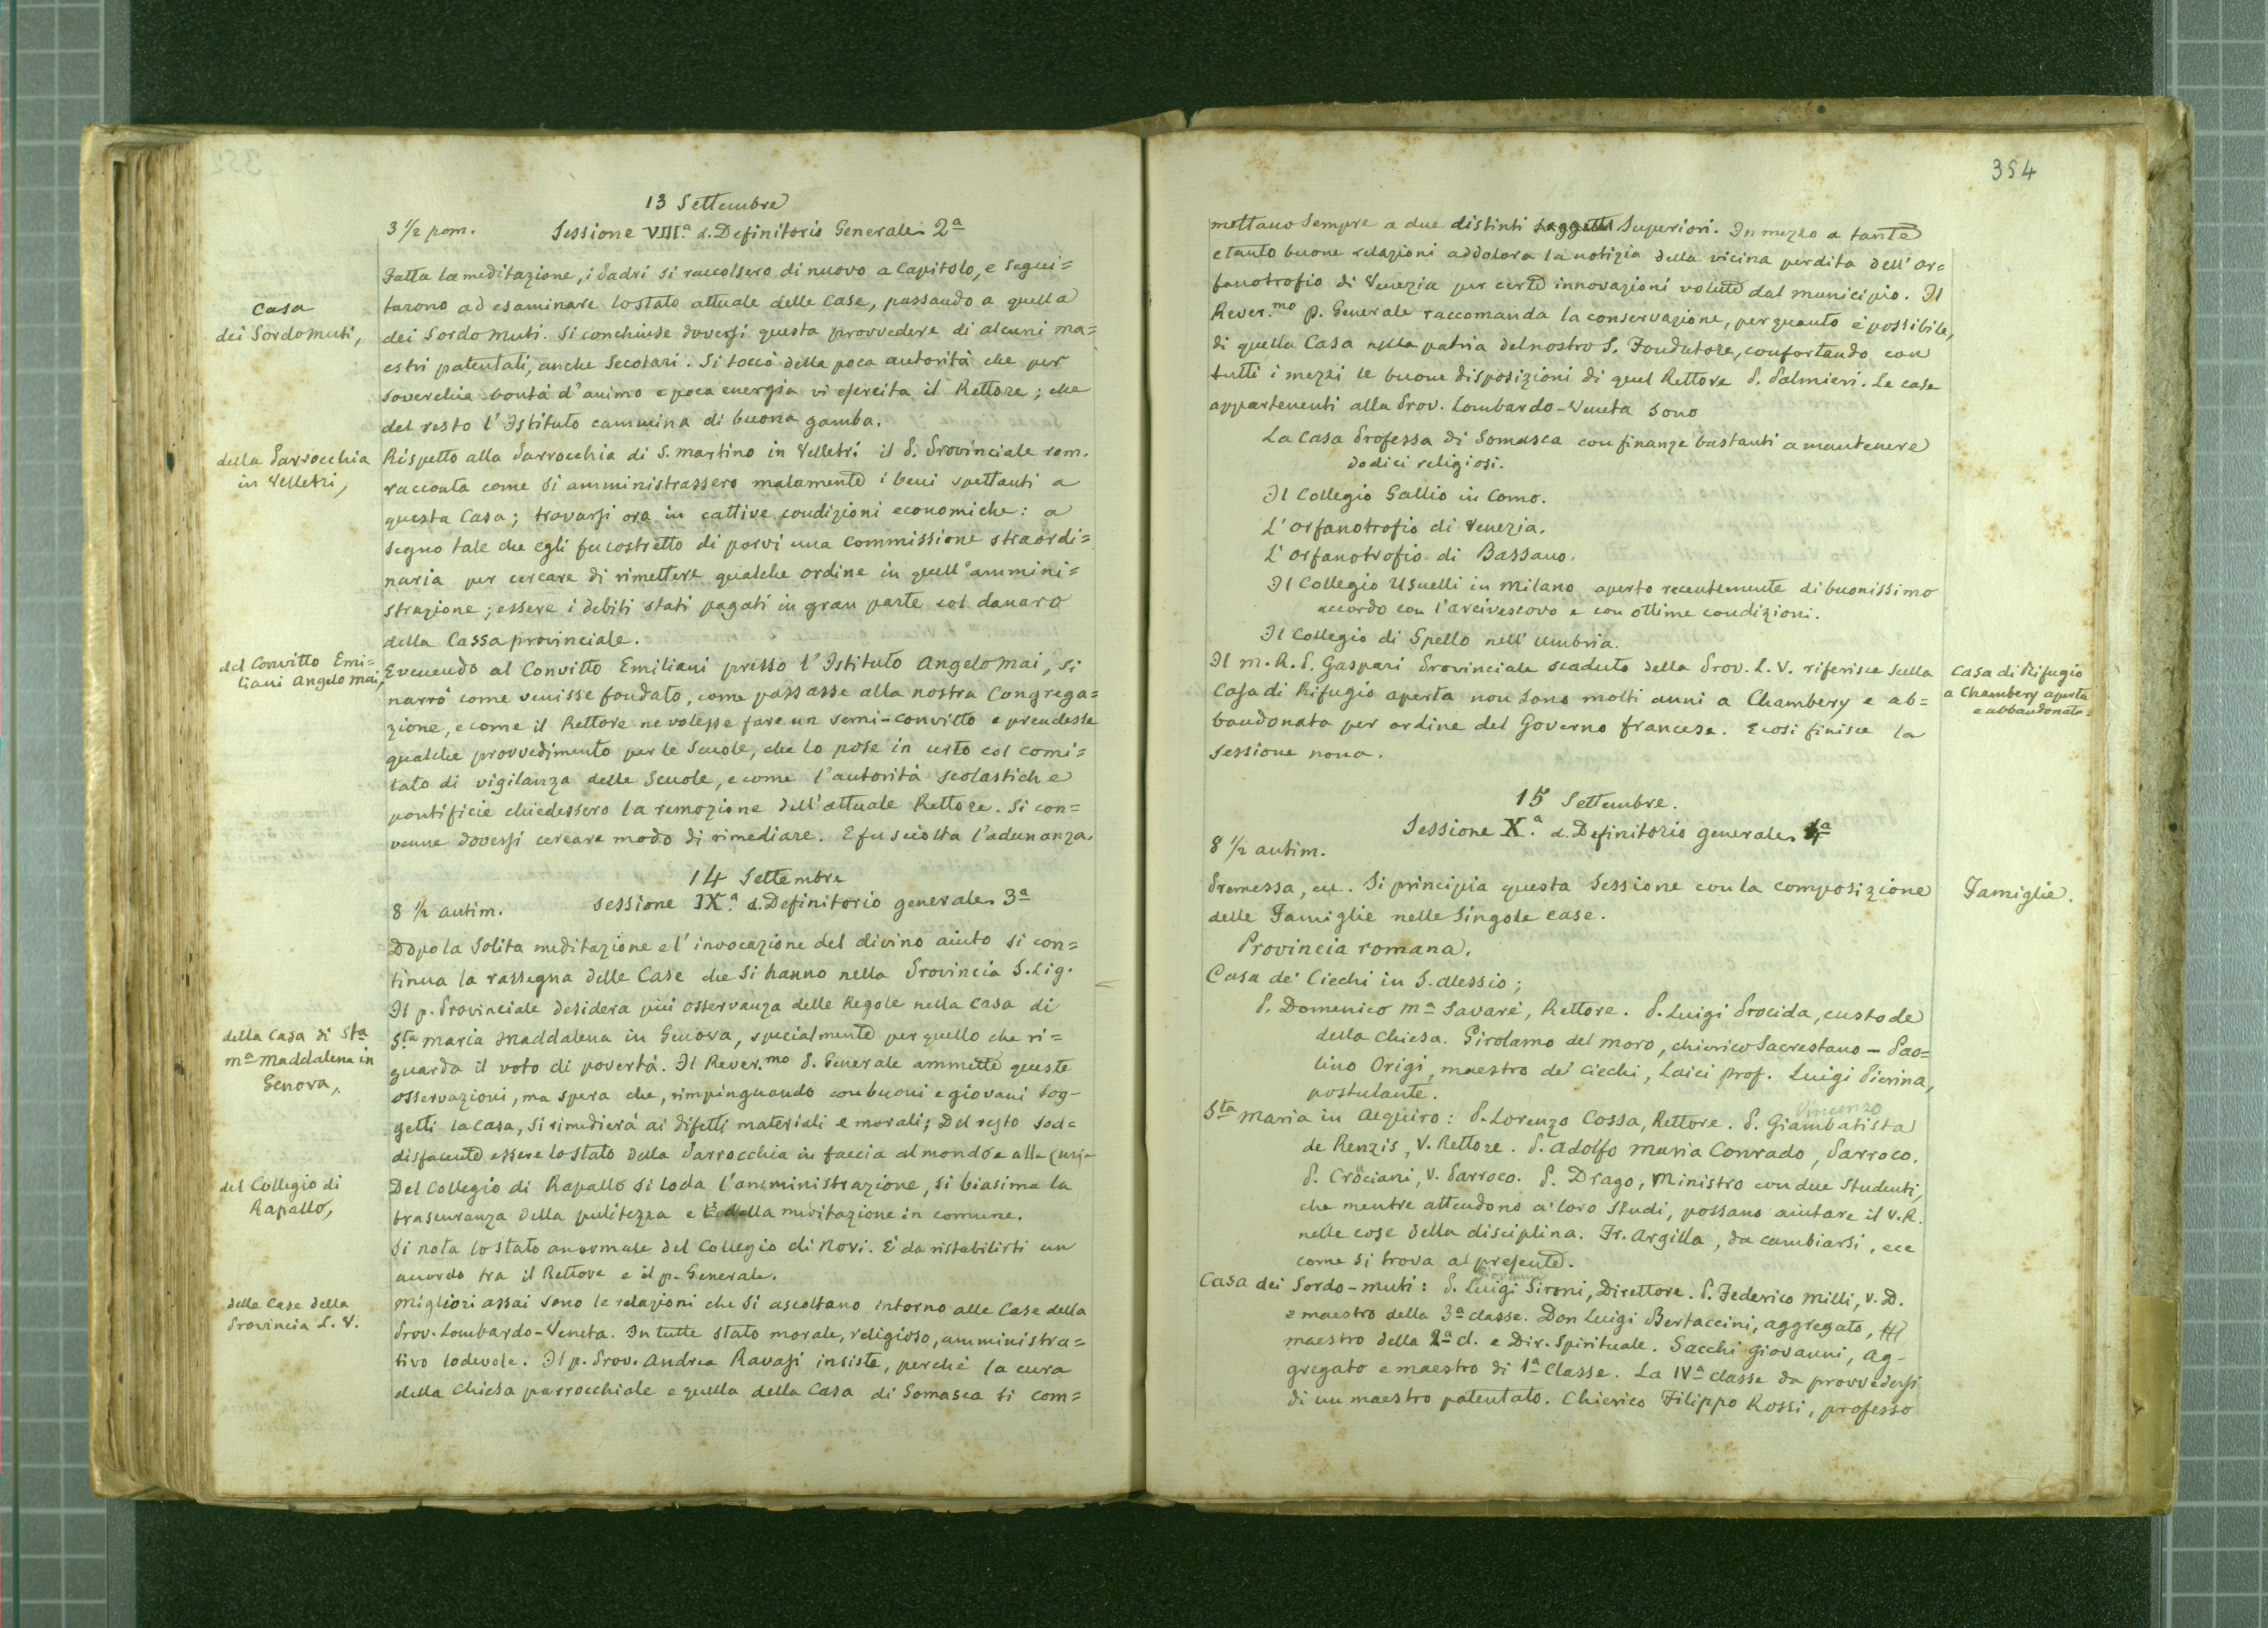 13 Settembre
3 1/2 pom. Sessione VIII.ª d. Definitorio Generale. 2ª
Fatta la meditazione, i Padri si raccolsero di nuovo a Capitolo, e segui=
Casa
dei Sordomuti,
tarono ad esaminare lo stato attuale delle Case, passando a quella
dei Sordo Muti. Si conchiuse doversi questa provvedere di alcuni ma=
estri patentati, anche Secolari. Si toccò della poca autorità che per
soverchia bontà d'animo e poca energia vi esercita il Rettore; che
del resto l'Istituto cammina di buona gamba.
della Parrocchia
in Velletri,
Rispetto alla Parrocchia di S. Martino in Velletri il P. Provinciale rom.
racconta come si amministrassero malamente i beni spettanti a
questa Casa; trovarsi ora in cattive condizioni economiche: a
segno tale che egli fu costretto di porvi una commissione straordi=
naria per cercare di rimettere qualche ordine in quell'ammini=
strazione; essere i debiti stati pagati in gran parte col danaro
della Cassa provinciale.
del Convitto Emi=
liani Angelo Mai,
E venendo al Convitto Emiliani presso l'Istituto Angelo Mai, si
narrò come venisse fondato, come passasse alla nostra Congrega=
zione, e come il Rettore ne volesse fare un semi-convitto e prendesse
qualche provvedimento per le Scuole, che lo pose in urto col comi=
tato di vigilanza delle Scuole, e come l'autorità scolastiche
pontificie chiedessero la remozione dell'attuale Rettore. Si con=
venne doversi cercare modo di rimediare. E fu sciolta l'adunanza.
14 Settembre
8 1/2 antim. Sessione IX.ª d. Definitorio generale. 3ª
Dopo la solita meditazione e l'invocazione del divino aiuto si con=
tinua la rassegna delle Case che si hanno nella Provincia S. Lig.
Il p. Provinciale desidera più osservanza delle Regole nella casa di
della Casa di Sta
Mª Maddalena in
Genova,
Sta Maria Maddalena in Genova, specialmente per quello che ri=
guarda il voto di povertà. Il Rever.mo P. Generale ammette queste
osservazioni, ma spera che, rimpinguando con buoni e giovani Sog-
getti la casa, si rimedierà ai difetti materiali e morali; Del resto sod=
disfacente essere lo stato della Parrocchia in faccia al mondo e alla Curia
del Collegio di
Rapallo,
Del Collegio di Rapallo si loda l'amministrazione, si biasima la
trascuranza della pulitezza e della meditazione in comune.
Si nota lo stato anormale del Collegio di Novi. E' da ristabilirsi un
accordo tra il Rettore e il p. Generale.
delle Case della
Provincia L. V.
Migliori assai sono le relazioni che si ascoltano intorno alle Case della
Prov. Lombardo-Veneta. In tutte stato morale, religioso, amministra=
tivo lodevole. Il p. Prov. Andrea Ravasi insiste, perchè la cura
della Chiesa parrocchiale e quella della Casa di Somasca si com=
354
mettano sempre a due distinti Superiori. In mezzo a tante
e tanto buone relazioni addolora la notizia della vicina perdita dell'Or=
fanotrofio di Venezia per certe innovazioni volute dal municipio. Il
Rever.mo P. Generale raccomanda la conservazione, per quanto è possibile,
di quella Casa nella patria del nostro S. Fondatore, confortando con
tutti i mezzi le buone disposizioni di quel Rettore P. Palmieri. Le case
appartenenti alla Prov. Lombardo-Veneta sono
La Casa Professa di Somasca con finanze bastanti a mantenere
dodici religiosi.
Il Collegio Gallio in Como.
L'Orfanotrofio di Venezia.
L'Orfanotrofio di Bassano.
Il Collegio Usuelli in Milano aperto recentemente di buonissimo
accordo con l'arcivescovo e con ottime condizioni.
Il Collegio di Spello nell'Umbria.
Il M. R. P. Gaspari Provinciale scaduto della Prov. L. V. riferisce sulla
Casa di Rifugio aperta non sono molti anni a Chambery e ab=
bandonata per ordine del Governo francese. E così finisce la
sessione nona.
Casa di Rifugio
a Chambery aperta
e abbandonata.
15 Settembre.
Sessione X.ª d. Definitorio generale. 4ª
8 1/2 antim.
Premessa, ecc. Si principia questa Sessione con la composizione
delle Famiglie nelle singole case.
Famiglie.
Provincia romana.
Casa de' Ciechi in S. Alessio;
P. Domenico Mª Savarè, Rettore. P. Luigi Procida, custode
della Chiesa. Girolamo del Moro, chierico Sacrestano - Pao=
lino Origi, maestro de' ciechi, Laici prof. Luigi Pierina,
postulante.
Vincenzo
Sta Maria in Aquiro: P. Lorenzo Cossa, Rettore. P. Giambatista
de Renzis, V. Rettore. P. Adolfo Maria Conrado, Parroco.
P. Crociani, V. Parroco. P. Drago, Ministro con due Studenti,
che mentre attendono a' loro Studi, possano aiutare il V.R.
nelle cose della disciplina. Fr. Argilla, da cambiarsi, ecc
come si trova al presente.
Casa dei Sordo-muti: P. Luigi Sironi, Direttore. P. Federico Milli, V. D.
e maestro della 3ª classe. Don Luigi Bertaccini, aggregato,
maestro della 2ª cl. e Dir. Spirituale. Sacchi Giovanni, Ag-
gregato e maestro di 1ª Classe. La IVª classe da provvedersi
di un maestro patentato. Chierico Filippo Rossi, professo